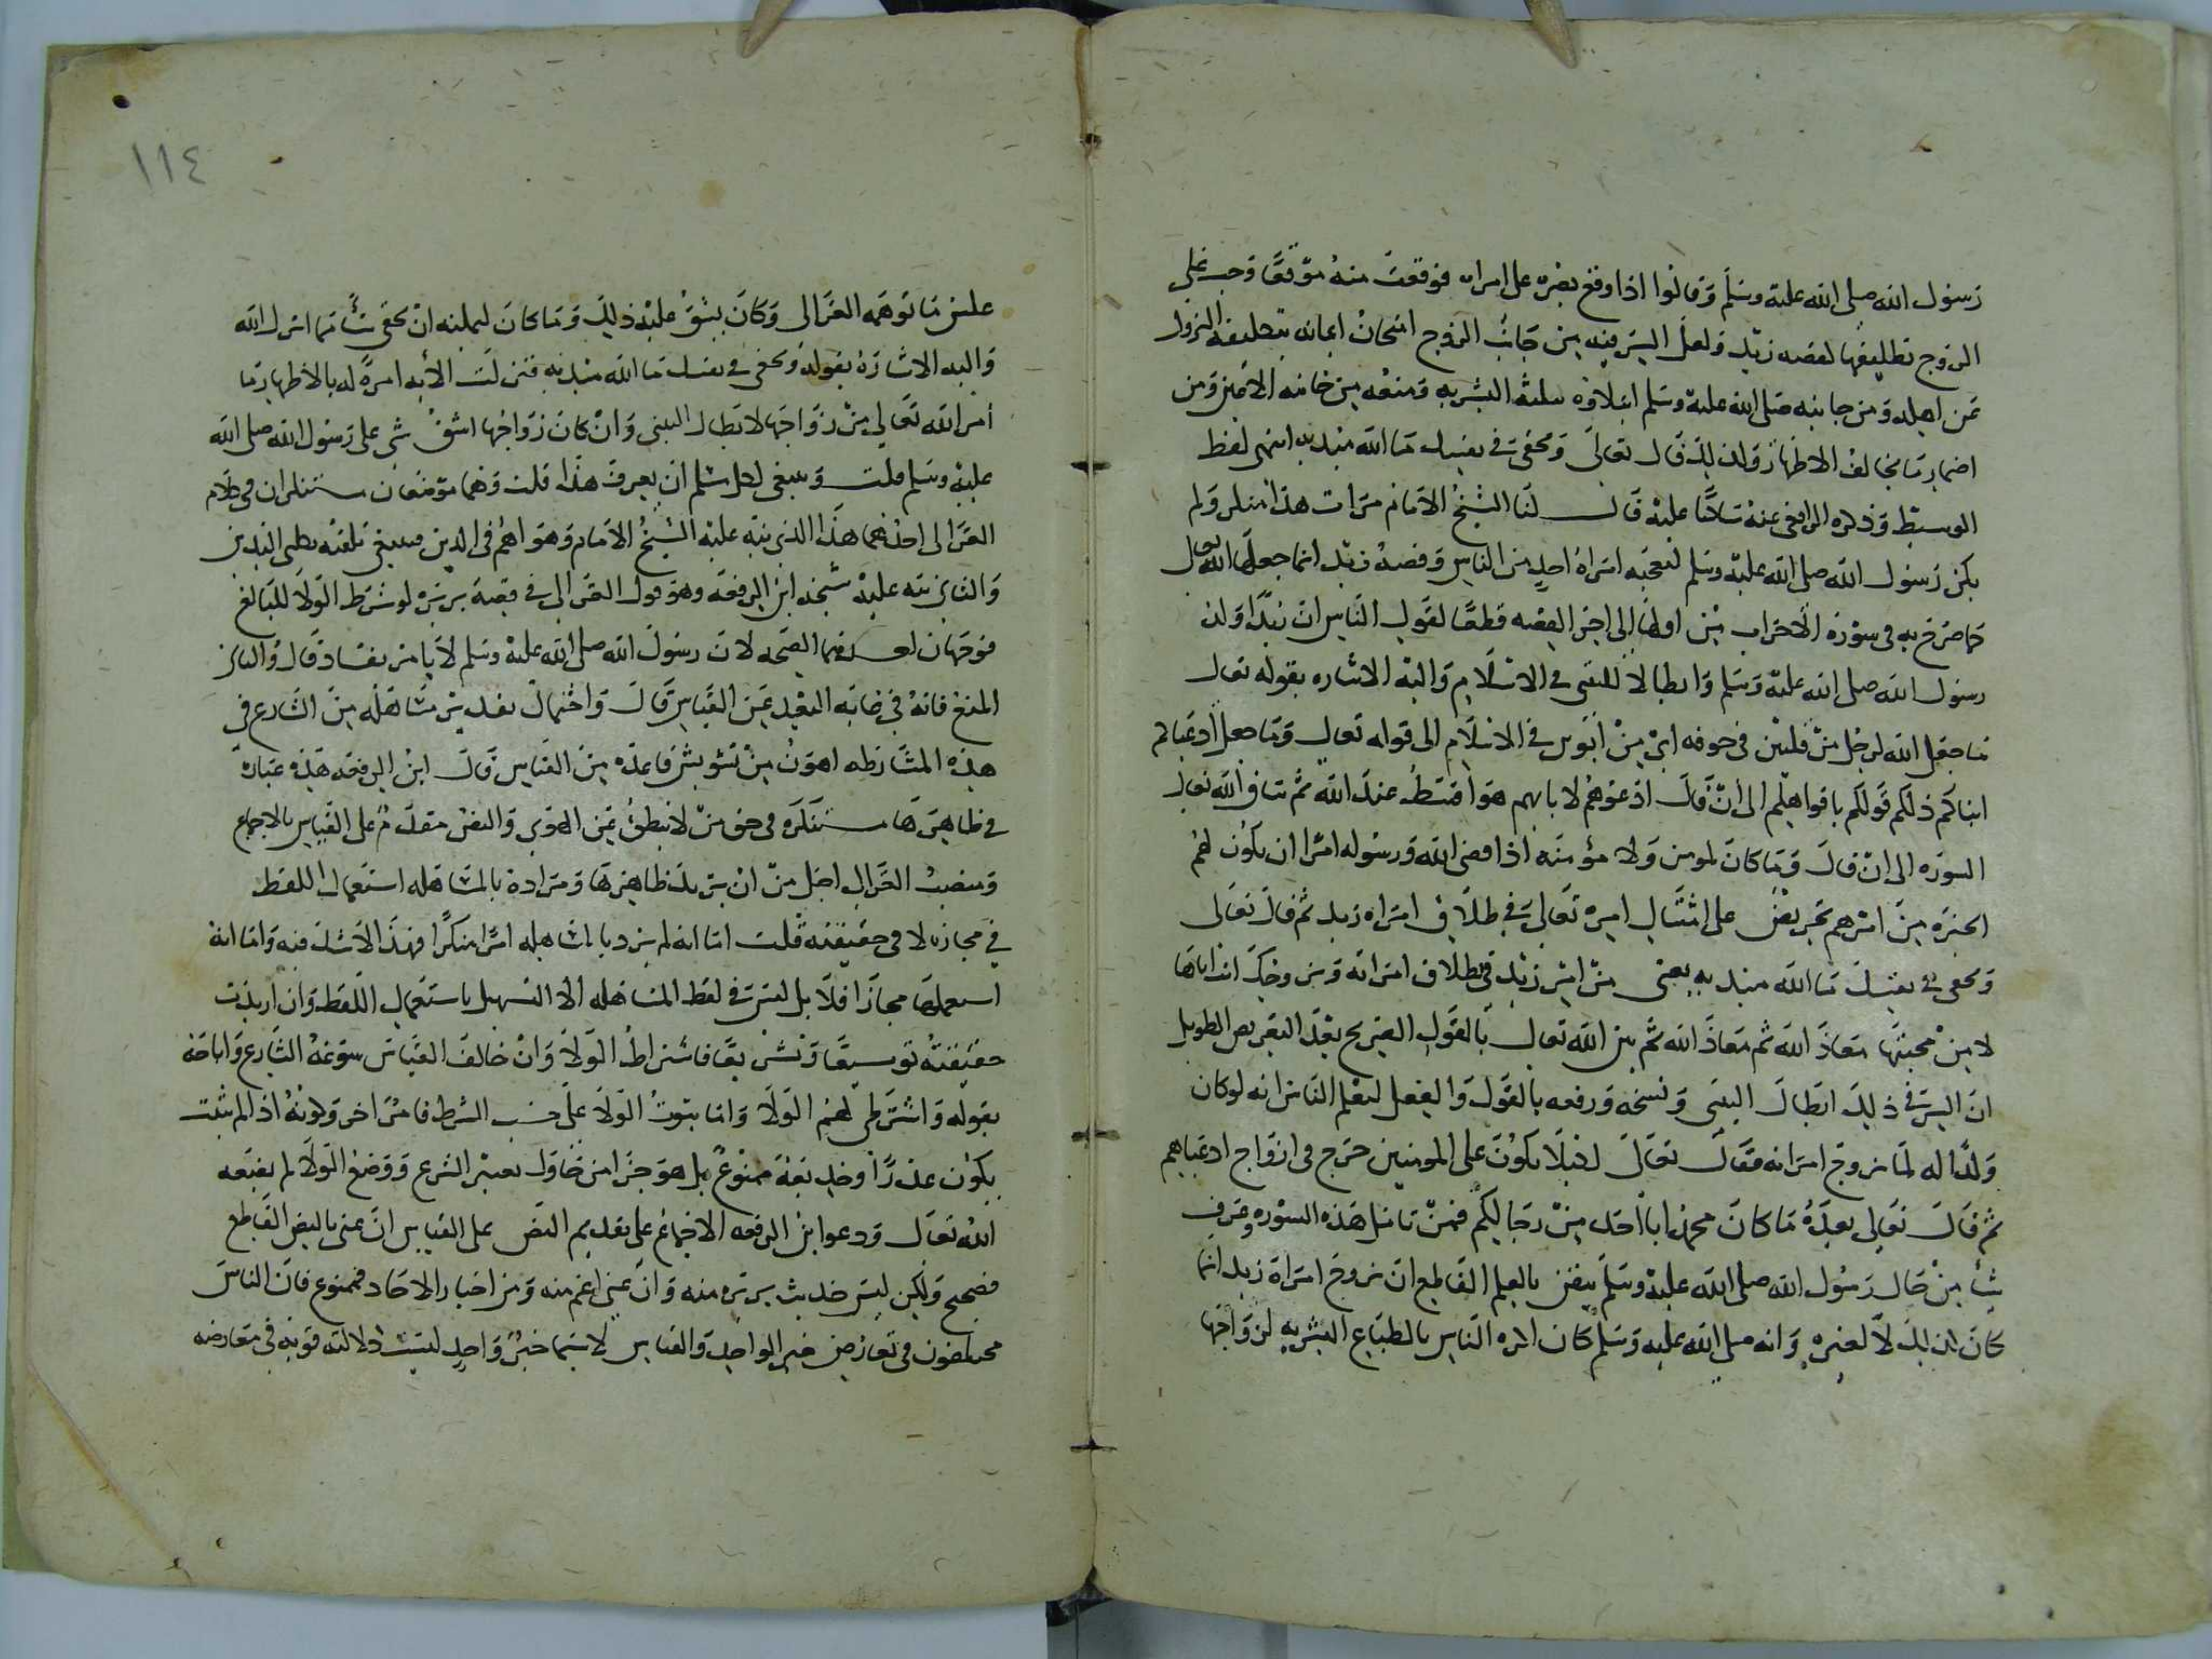 رسول الله صلى الله عليه وسلم وقالوا اذا وقع بصره على امراه فوقعت منه موقعا وجب على
الزوج تطليقها لقصه زيد ولعل السر فيه من جانب الزوج امتحان ايمانه بتكليفه النزول
عن اهله ومن جانبه صلى الله عليه وسلم ابتلاوه ببليه البشريه ومنعه من خاينه الاعين ومن
اضمار ما يخالف الاظهار ولذلك قال تعالى وتخفي في نفسك ما الله مبديه انتهى لفظ
الوسيط وذكره الرافعي عنه ساكتا عليه قال لنا الشيخ الامام مرات هذا منكر ولم
يكن رسول الله صلى الله عليه وسلم تعجبه امراة احد من الناس وقصه زيد انما جعلها الله تعالى
كما صرح به في سورة الاحزاب من اولها الى اخر القصه قطعا لقول الناس ان زيدا ولد
رسول الله صلى الله عليه وسلم وابطالا للتبني في الاسلام واليه الاشاره بقوله تعالى
ما جعل الله لرجل من قلبين في جوفه اي من ابوين في الاسلام الى قوله تعالى وما جعل ادعياكم
ابناكم ذلكم قولكم بافواهكم الى ان قال ادعوهم لابايهم هو اقسط عند الله ثم ساق الله تعالى
السوره الى ان قال وما كان لمومن ولا مؤمنه اذا قضى الله ورسوله امرا ان يكون لهم
الخيره من امرهم تحريض على امتثال امره تعالى في طلاق امراه زيد ثم قال تعالى
وتخفي في نفسك ما الله مبديه يعني من امر زيد في طلاق امراته ومن وحيك اياها
لا من محبتها معاذ الله ثم معاذ الله ثم بين الله تعالى بالقول الصريح بعد التعريض الطويل
ان السر في ذلك ابطال التبني ونسخه ورفعه بالقول والفعل ليعلم الناس انه لو كان
ولدا له لما تزوج امراته فقال تعالى لكيلا يكون على المومنين حرج في ازواج ادعياهم
ثم قال تعالى بعده ما كان محمد ابا احد من رجالكم فمن تامل هذه السوره وعرف
شيأ من حال رسول الله صلى الله عليه وسلم تيقن بالعلم القاطع ان تزوج امراة زيد انما
كان لذلك لا لغيره وانه صلى الله عليه وسلم كان اكره الناس بالطباع البشريه لزواجها
١١٤
عكس ما توهمه الغزالي وكان يشق عليه ذلك وما كان يمكنه ان يخفي شيأ مما انزل الله
واليه الاشارة بقوله وتخفي في نفسك ما الله مبديه فنزلت الأيه امره له بالاظهار بما
أمر الله تعالى من زواجها لابطال التبني وان كان زواجها اشق شي على رسول الله صلى الله
عليه وسلم قلت وينبغي لكل مسلم ان يعرف هذا قلت وهما موضعان مستنكران في كلام
الغزالي احدهما هذا الذي نبه عليه الشيخ الامام وهو اهم في الدين فينبغي تلقنه بكلتي اليدين
والثاني نبه عليه شيخه ابن الرفعه وهو قول الغزالي في قصة بريره لو شرط الولا للبايع
فوجهان احدهما الصحه لان رسول الله صلى الله عليه وسلم لا يامر بفساد قال والثاني
المنع فانه في غايه البعد عن القياس قال واحتمال تقدير مساهله من الشارع في
هذه المشارطه اهون من تشويش قاعده من القياس قال ابن الرفعه هذه عبارة
في ظاهرها مستنكره في حق من لا ينطق عن الهوى والنص مقدم على القياس بالاجماع
ومنصب الغزالي اجل من ان يريد ظاهرها ومراده بالمساهله استعمال اللفظ
في مجازه لا في حقيقته قلت اما انه لم يرد بالمساهله امرا منكرا فهذا لا شك فيه واما انه
استعملها مجازا فلا بل ليس في لفظ المساهله الا التسهيل باستعمال اللفظ وان اريدت
حقيقته توسيعا وتشريعا فاشتراط الولا وان خالف القياس سوغه الشارع واباحه
بقوله واشترطي لهم الولا واما ثبوت الولا على حسب الشرط فامر اخر وكونه اذا لم يثبت
يكون غدرا وخديعه ممنوع بل هو جزا من حاول تغيير الشرع ووضع الولا لم يضعه
الله تعالى ودعوا ابن الرفعه الاجماع على تقديم النص على القياس ان عنى بالنص القاطع
فصحيح ولكن ليس حديث بريره منه وان عنى اعم منه ومن اخبار الاحاد فممنوع فان الناس
مختلفون في تعارض خبر الواحد والقياس لاسيما خبر واحد ليست دلالته قويه في معارضه